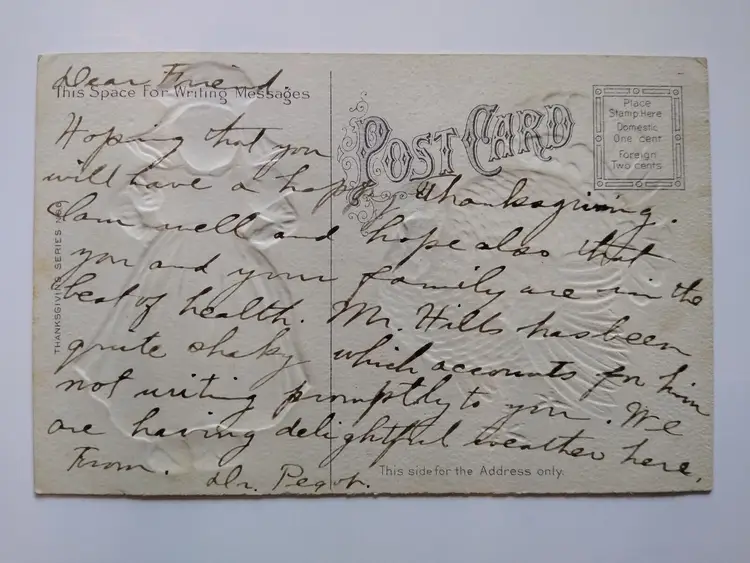 Dear Friend.
This Space For Writing Messages
Hoping that you
will have a happy Thanksgiving.
I am well and hope also that
you and your family are in the
best of health. Mr. Hills has been
quite shaky which accounts for him
not writing promptly to you. We
are having delightful weather here.
From.
Dr.
POST CARD
Place
Stamp Here
Domestic
One cent
Foreign
Two cents
THANKSGIVING SERIES
This side for the Address only.